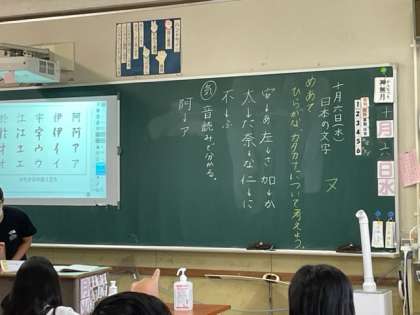 十月六日(水)
日本の文字
ヌ
めあて
ひらがな、カタカナについて考えよう。
安→あ 左→さ 加→か
太→た 奈→な 仁→に
不→ふ
気 音読みで分かる。
阿→ア
阿 阿 ア
伊 伊 イ
宇 宇 ウ
江 江 エ
於 オ
1
2
3
4
5
6
十
月
六
日
水